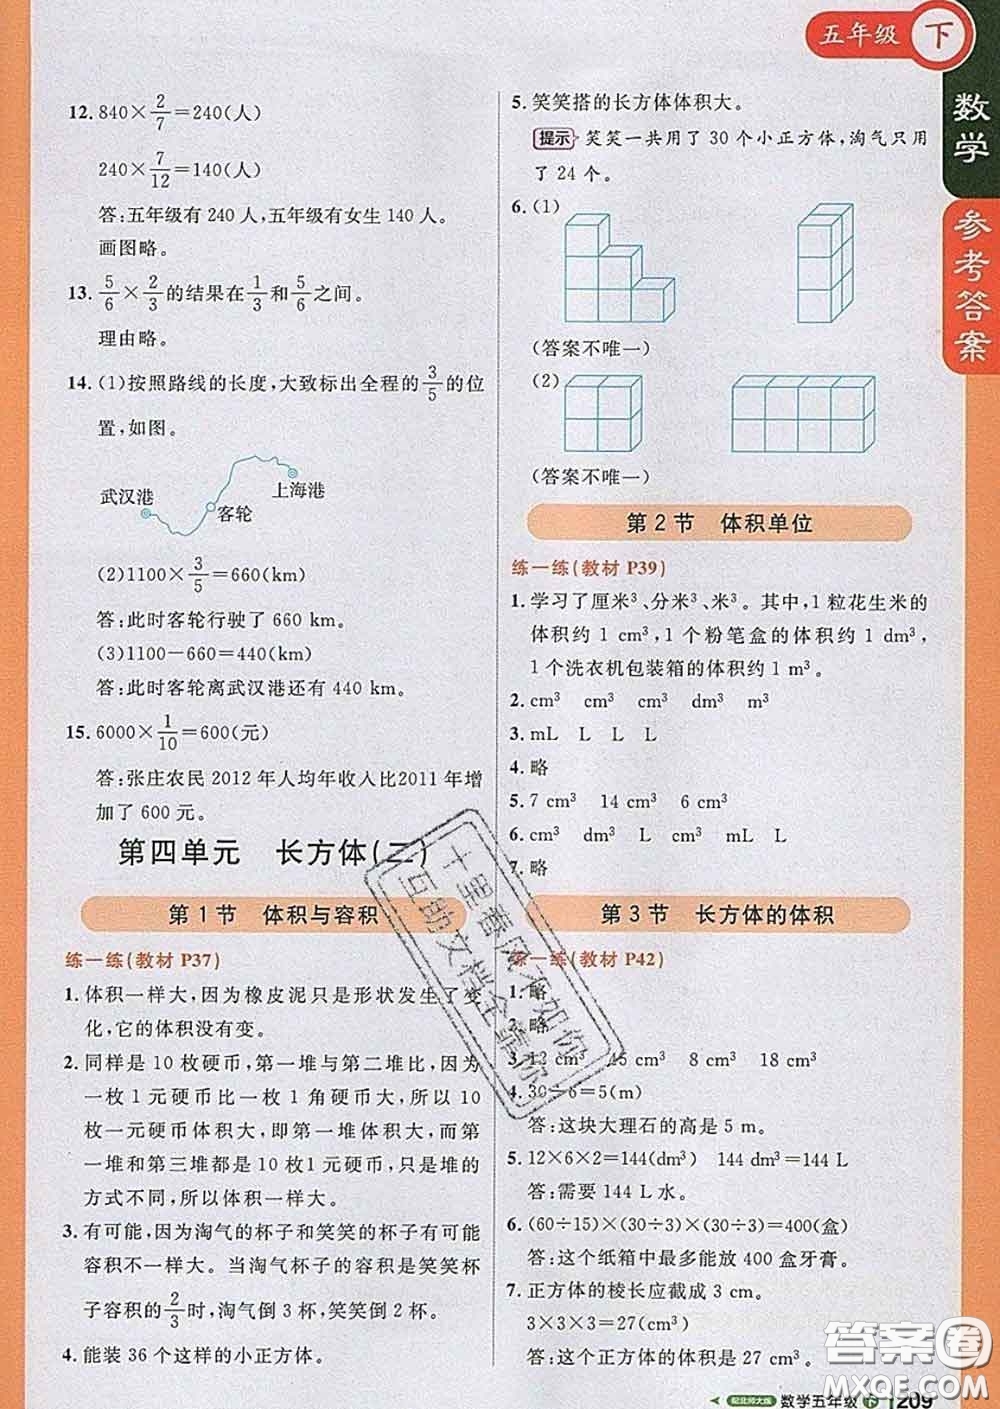 五年级 下
数学
参考答案
12. 840×2/7=240(人)
240×7/12=140(人)
答:五年级有 240 人,五年级有女生 140 人。
画图略。
13. 5/6×2/3的结果在1/3和5/6之间。
理由略。
14. (1)按照路线的长度,大致标出全程的3/5的位
置,如图。
武汉港
客轮
上海港
(2)1100×3/5=660(km)
答:此时客轮行驶了 660 km。
(3)1100-660=440(km)
答:此时客轮离武汉港还有 440 km。
15. 6000×1/10=600(元)
答:张庄农民 2012 年人均年收入比2011 年增
加了 600 元。
第四单元 长方体(二)
第 1 节 体积与容积
练一练(教材 P37)
1. 体积一样大,因为橡皮泥只是形状发生了变
化,它的体积没有变。
2. 同样是 10 枚硬币,第一堆与第二堆比,因为
一枚 1 元硬币比一枚 1 角硬币大,所以 10
枚一元硬币体积大,即第一堆体积大,而第
一堆和第三堆都是 10 枚1元硬币,只是堆的
方式不同,所以体积一样大。
3. 有可能,因为淘气的杯子和笑笑的杯子有可能
容积不一样大。当淘气杯子的容积是笑笑杯
子容积的2/3时,淘气倒 3 杯,笑笑倒 2 杯。
4. 能装 36 个这样的小正方体。
5. 笑笑搭的长方体体积大。
提示 笑笑一共用了 30 个小正方体,淘气只用
了 24 个。
6. (1)
(答案不唯一)
(2)
(答案不唯一)
第 2 节 体积单位
练一练(教材 P39)
1. 学习了厘米³、分米³、米³。其中,1 粒花生米的
体积约 1 cm³,1 个粉笔盒的体积约 1 dm³,
1 个洗衣机包装箱的体积约 1 m³。
2. cm³ cm³ cm³ dm³ m³
3. mL L L L
4. 略
5. 7 cm³ 14 cm³ 6 cm³
6. cm³ dm³ L cm³ mL L
7. 略
第 3 节 长方体的体积
练一练(教材 P42)
1. 略
2. 略
3. 12 cm³ 45 cm³ 8 cm³ 18 cm³
4. 30÷6=5(m)
答:这块大理石的高是 5 m。
5. 12×6×2=144(dm³)=144 L
答:需要 144 L 水。
6. (60÷15)×(30÷3)×(30÷3)=400(盒)
答:这个纸箱中最多能放 400 盒牙膏。
7. 正方体的棱长应截成 3 cm。
3×3×3=27(cm³)
答:这个正方体的体积是 27 cm³。
十里春风不如你
互助文档全靠你
答案圈
MXQE.COM
配北师大版 数学五年级 下 209